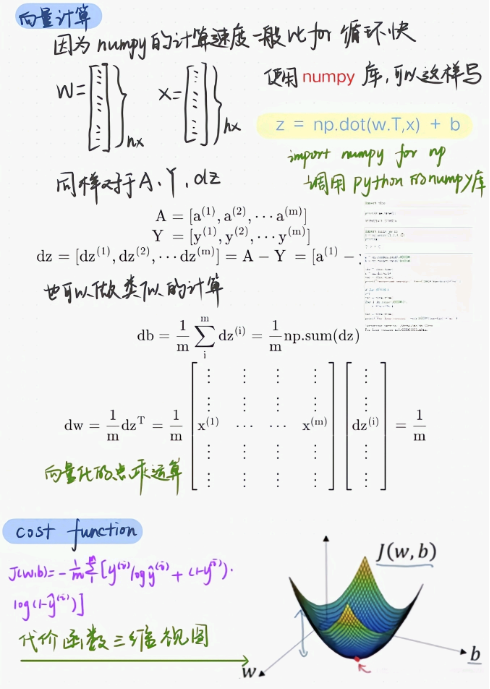 向量计算
因为numpy的计算速度一般比for循环快
w=[⋮]}nx x=[⋮]}nx
使用numpy库,可以这样写
z = np.dot(w.T,x) + b
import numpy for np
调用python的numpy库
同样对于A、Y、dz
A = [a⁽¹⁾, a⁽²⁾, ⋯ a⁽ᵐ⁾]
Y = [y⁽¹⁾, y⁽²⁾, ⋯ y⁽ᵐ⁾]
dz = [dz⁽¹⁾, dz⁽²⁾, ⋯ dz⁽ᵐ⁾] = A − Y = [a⁽¹⁾ −
也可以做类似的计算
db = 1/m ∑ᵢᵐ dz⁽ⁱ⁾ = 1/m np.sum(dz)
dw = 1/m dzᵀ = 1/m [x⁽¹⁾ ⋯ ⋯ x⁽ᵐ⁾] [dz⁽ⁱ⁾] = 1/m
向量化的点乘运算
cost function
J(w,b) = −1/m ∑ᵢᵐ [y⁽ⁱ⁾log ŷ⁽ⁱ⁾ + (1−y⁽ⁱ⁾)·
log(1−ŷ⁽ⁱ⁾)]
代价函数三维视图
J(w, b)
w
b